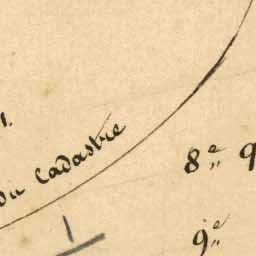 du Cadastre
8e 9
9e